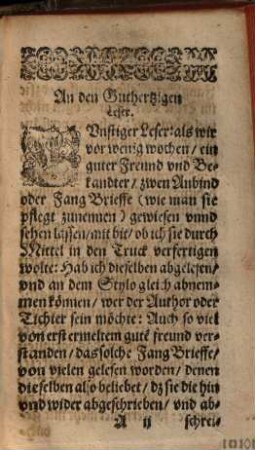 An den Guthertzigen
Leser.
GUnstiger Leser: als wir
vor wenig wochen / ein
guter Freund vnd Be-
kandter / zwen Anbind
oder Fang Brieffe (wie man sie
pflegt zunennen) gewiesen vnnd
sehen lassen / mit bit / ob ich sie durch
Mittel in den Truck verfertigen
wolte: Hab ich dieselben abgelesen /
vnd an dem Stylo gleich abnem-
men können / wer der Author oder
Tichter sein möchte: Auch so viel
von erst ermeltem gutē freund ver-
standen / das solche Fang Brieffe /
von vielen gelesen worden / denen
dieselben also beliebet / dz sie die hin
vnd wider abgeschrieben / vnd ab-
A ij schrei-